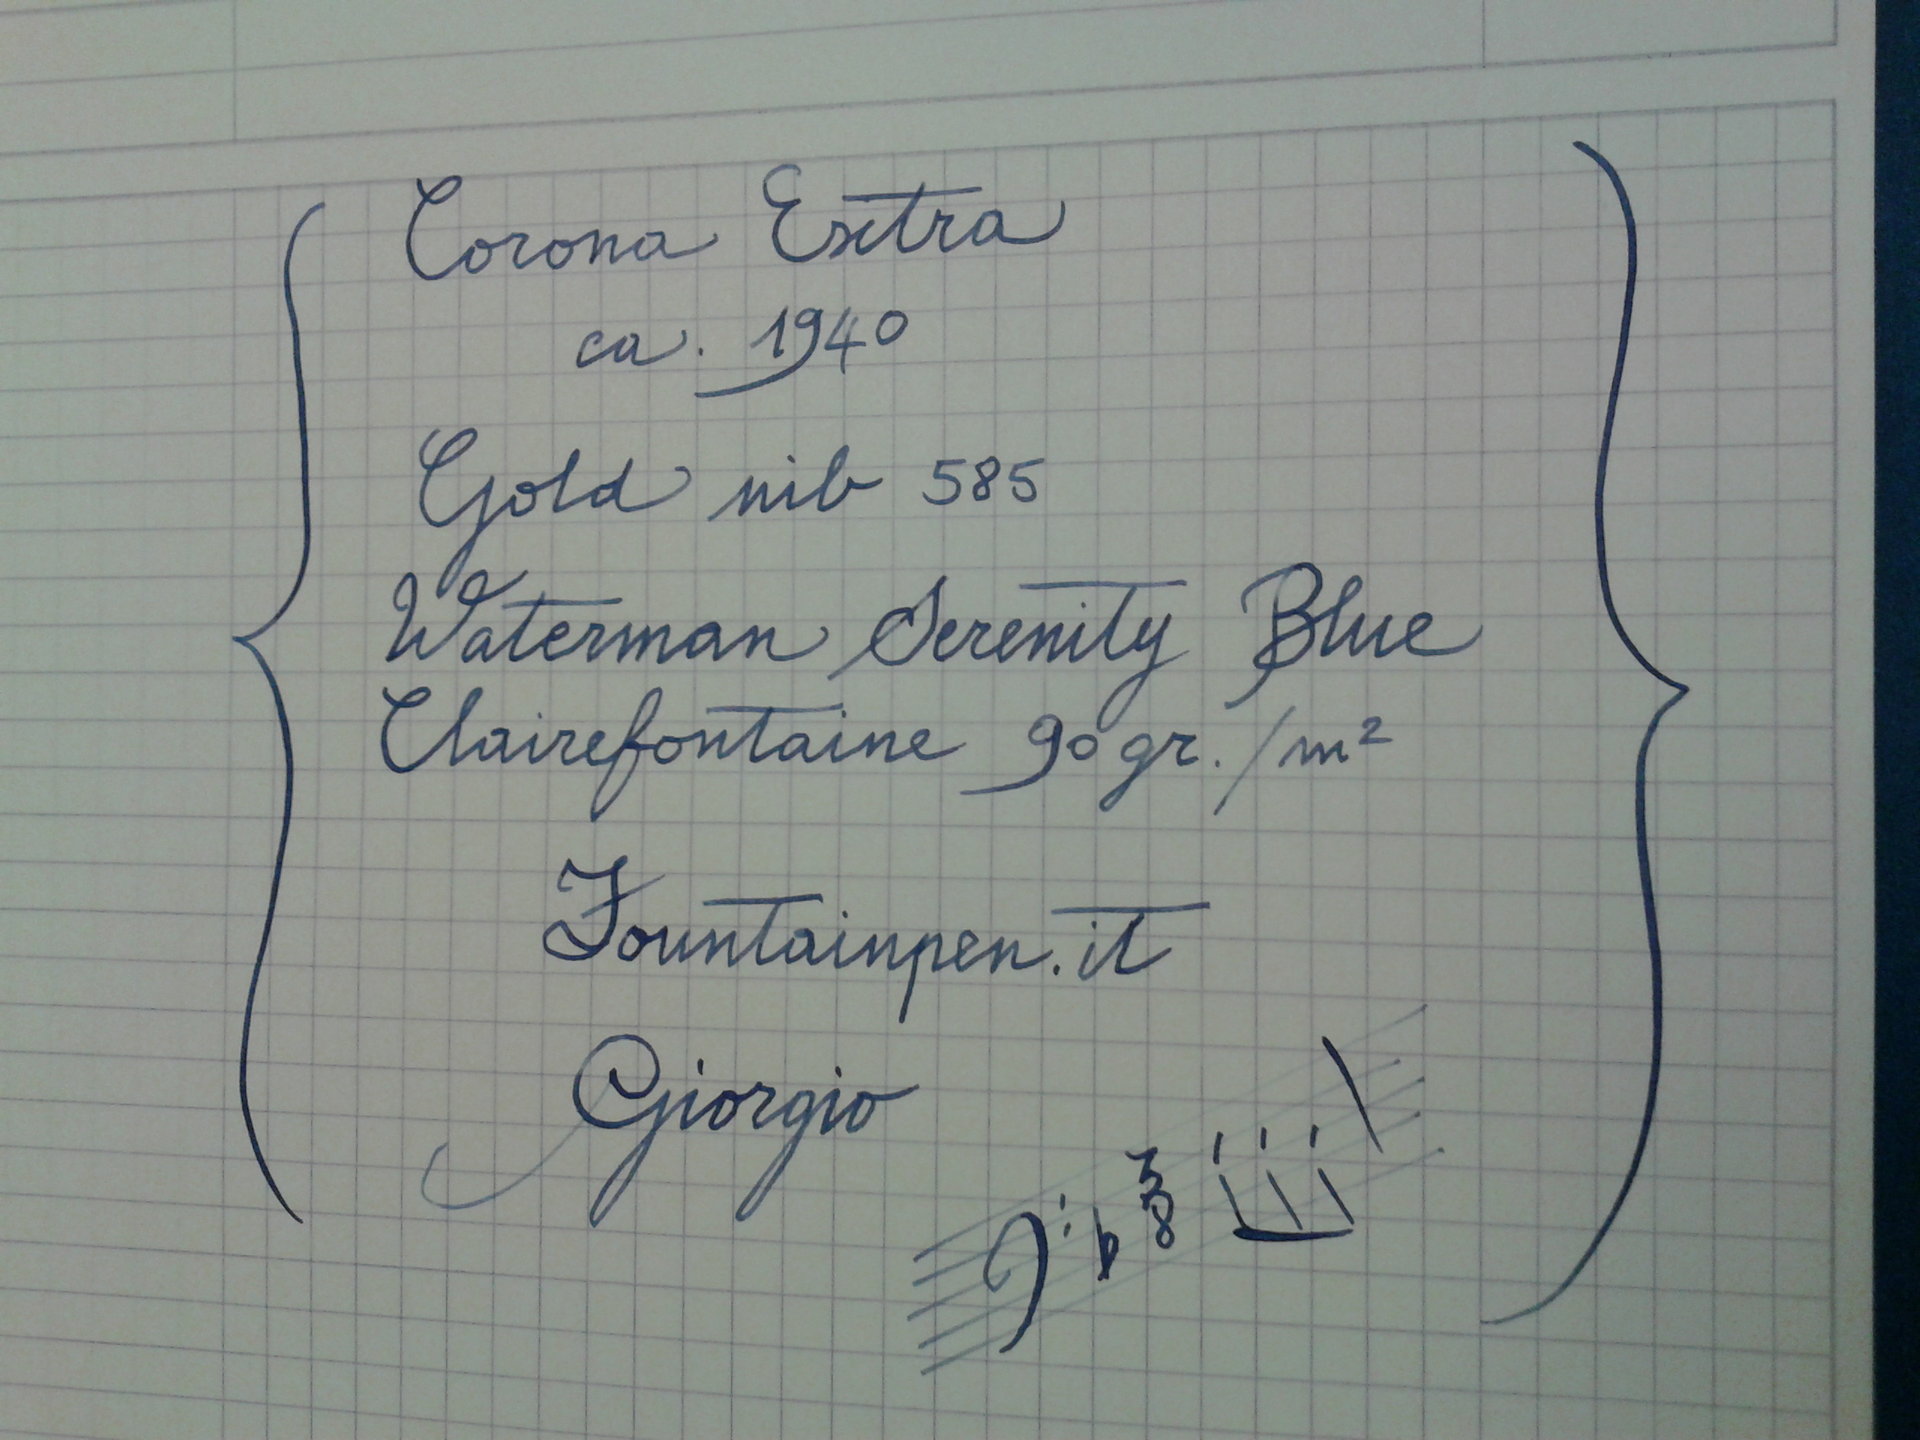 Corona Extra
ca. 1940
Gold nib 585
Waterman Serenity Blue
Clairefontaine 90 gr./m²
Fountainpen.it
Giorgio